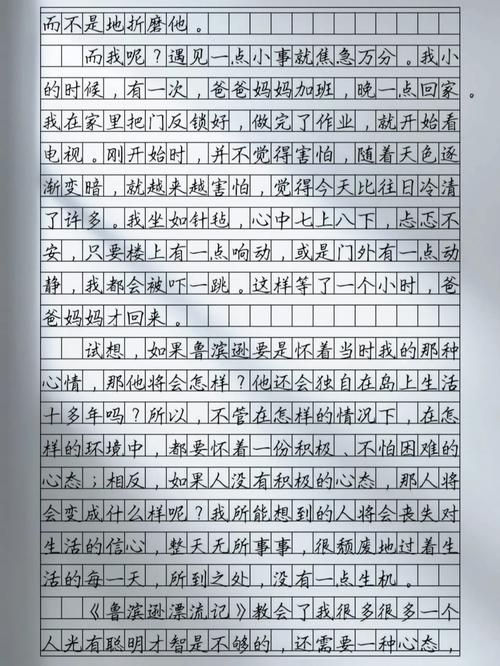 而不是地折磨他。
而我呢？遇见一点小事就焦急万分。我小
的时候，有一次，爸爸妈妈加班，晚一点回家。
我在家里把门反锁好，做完了作业，就开始看
电视。刚开始时，并不觉得害怕，随着天色逐
渐变暗，就越来越害怕，觉得今天比往日冷清
了许多。我坐如针毡，心中七上八下，忐忑不
安，只要楼上有一点响动，或是门外有一点动
静，我都会被吓一跳。这样等了一个小时，爸
爸妈妈才回来。
试想，如果鲁滨逊要是怀着当时我的那种
心情，那他将会怎样？他还会独自在岛上生活
十多年吗？所以，不管在怎样的情况下，在怎
样的环境中，都要怀着一份积极、不怕困难的
心态；相反，如果人没有积极的心态，那人将
会变成什么样呢？我所能想到的人将会丧失对
生活的信心，整天无所事事，很颓废地过着生
活的每一天，所到之处，没有一点生机。
《鲁滨逊漂流记》教会了我很多很多一个
人光有聪明才智是不够的，还需要一种心态，